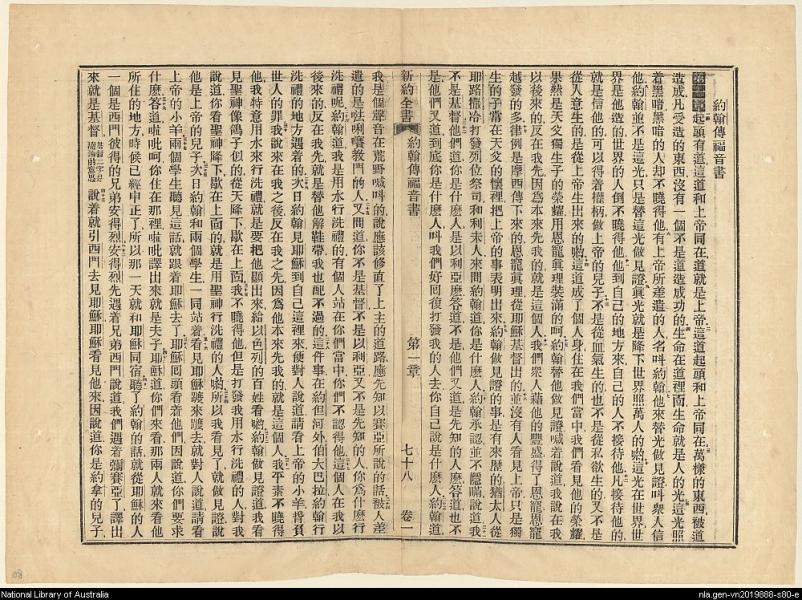 約翰傳福音書
第一章起頭有道這道和上帝同在道就是上帝這道起頭和上帝同在萬樣的東西被道
造成凡受造的東西沒有一個不是道造成功的生命在道裡面生命就是人的光這光照
着黑暗黑暗的人却不曉得他有上帝所差遣的人名呌約翰他來替光做見證呌衆人信
他約翰並不是這光只是替這光做見證眞光就是降下世界照萬人的喲這光在世界世
界是他造的世界的人倒不曉得他他到自己的地方來自己的人不接待他凡接待他的
就是信他的可以得着權柄做上帝的兒子不是從血氣生的也不是從私欲生的又不是
從人意生的是從上帝生出來的喲這道成了個人身住在我們當中我們看見他的榮耀
果然是天父獨生子的榮耀用恩寵眞理裝滿的呵約翰替他做見證喊着說道我說在我
以後來的反在我先因為本來先我的就是這個人我們衆人藉他的豐盛得了恩寵恩寵
越發的多律例是摩西傳下來的恩寵眞理從耶穌基督出的並沒有人看見上帝只是獨
生的子常在天父的懷裡把上帝的事表明出來約翰做見證的事是有來歷的猶太人從
耶路撒冷打發列位祭司和利未人來問約翰道你是什麽人約翰承認並不隱瞞說道我
不是基督他們道你是什麽人是以利亞麽答道不是他們又道是先知的人麽答道也不
是他們又道到底你是什麽人呌我們好回復打發我的人去你自己說是什麽人約翰道
新約全書 約翰傳福音書 第一章 七十八 卷一
我是個聲音在荒野喊呌的說應該修直了上主的道路應先知以賽亞所說的話被人差
遣的是𠵽唎嚷教門的人又問道你不是基督不是以利亞又不是先知的人你為什麽行
洗禮呢約翰道我是用水行洗禮的有個人站在你們當中你們不認得他這個人在我以
後來的反在我先就是替他解鞋帶我也配不過的這件事在約但河外伯大巴拉約翰行
洗禮的地方遇着的次日約翰見耶穌到自己這裡來便對人說道請看上帝的小羊揹負
世人的罪我說來在我之後反在我之先因為他本來先我的就是這個人我平素不曉得
他我特意用水來行洗禮就是要把他顯出來給以色列的百姓看喲約翰做見證道我看
見聖神像鴿子似的從天降下歇在上面我不曉得他但是打發我用水行洗禮的人對我
說道你看聖神降下歇在上面的就是用聖神行洗禮的人喲所以我看見了就做見證說
他是上帝的兒子次日約翰和兩個學生一同站着看見耶穌踱來踱去就對人說道請看
上帝的小羊兩個學生聽見這話就跟着耶穌去了耶穌回頭看着他們因說道你們要求
什麽答道啦吡呵你住在那裡啦吡譯出來就是夫子耶穌道你們來看那兩人就來看他
所住的地方時候已經申正了所以那一天就和耶穌同宿聽了約翰的話就從耶穌的人
一個是西門彼得的兄弟安得烈安得烈先遇着兄弟西門說道我們遇着彌賽亞了譯出
來就是基督 說着就引西門去見耶穌耶穌看見他來因說道你是約拿的兒子
National Library of Australia
nla.gen-vn2019888-s80-e